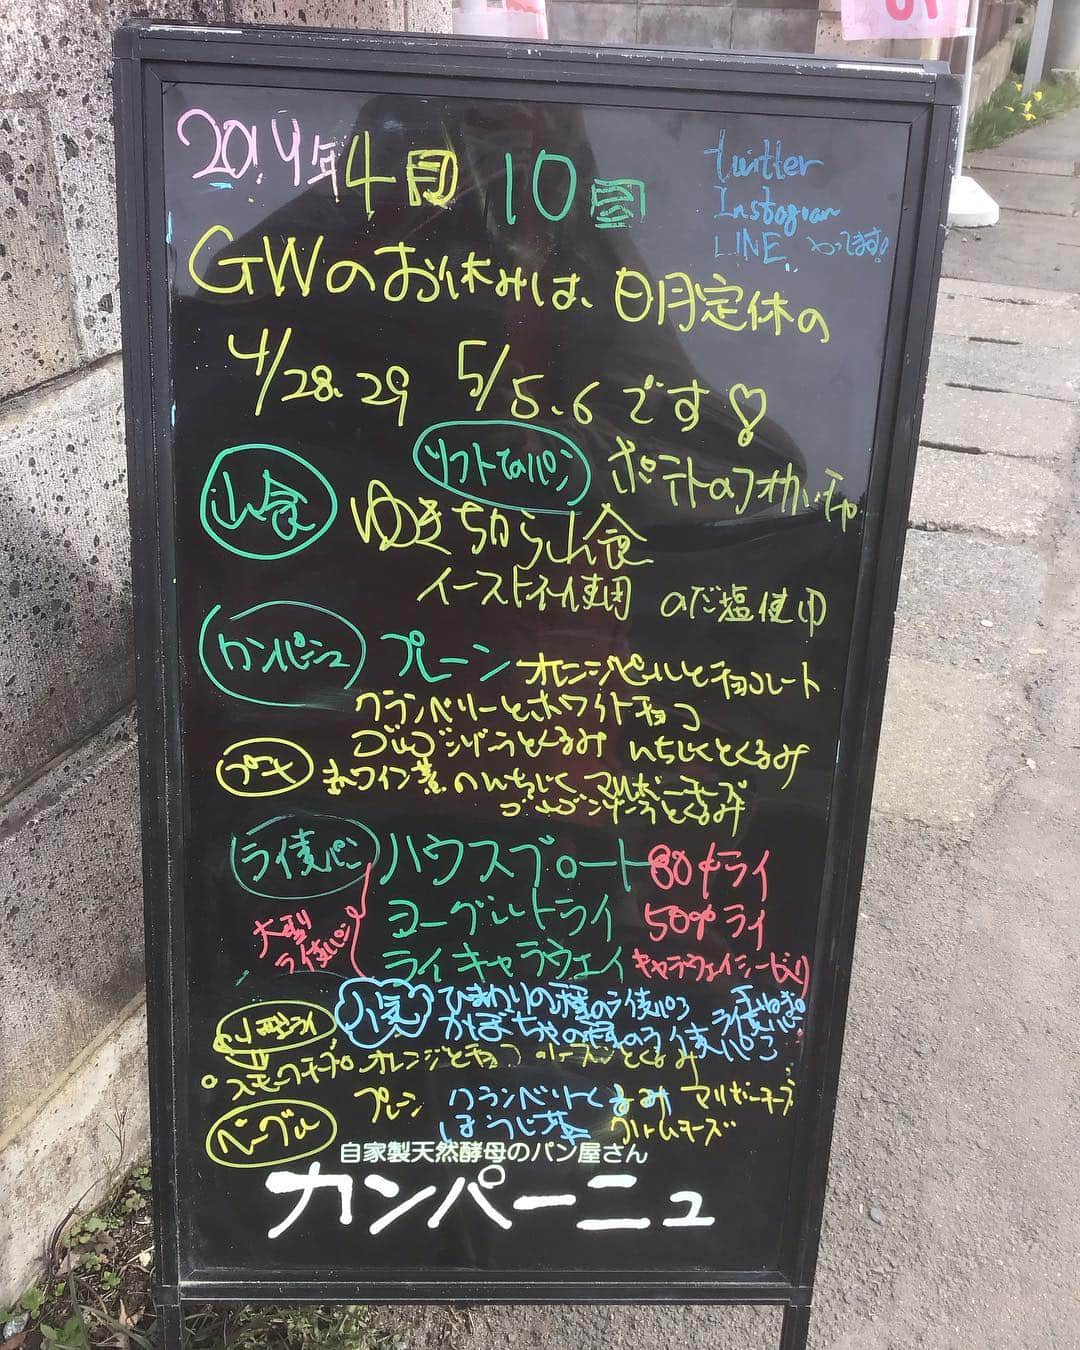 4月10日
twitter
Instagram
LINE やってます!
GWのお休みは、日月定休の
4/28.29 5/5.6です♡
山食
ソフトなパン ポテトのフォカッチャ
ゆきちから山食
イースト不使用 のだ塩使用
カンパーニュ プレーン オレンジピールとチョコレート
クランベリーとホワイトチョコ
ゴルゴンゾーラとくるみ いちじくとくるみ
プチ 赤ワイン煮のいちじく マリボーチーズ
ゴルゴンゾーラとくるみ
ライ麦パン ハウスブロート 80%ライ
大型ライ麦パン
ヨーグルトライ 50%ライ
ライキャラウェイ キャラウェイシード入り
小型ライ
人気
ひまわりの種のライ麦パン 玉ねぎのライ麦パン
かぼちゃの種のライ麦パン
オレンジとチョコ レーズンとくるみ
ベーグル
プレーン クランベリーとくるみ マリボーチーズ
ほうじ茶 クリームチーズ
自家製天然酵母のパン屋さん
カンパーニュ